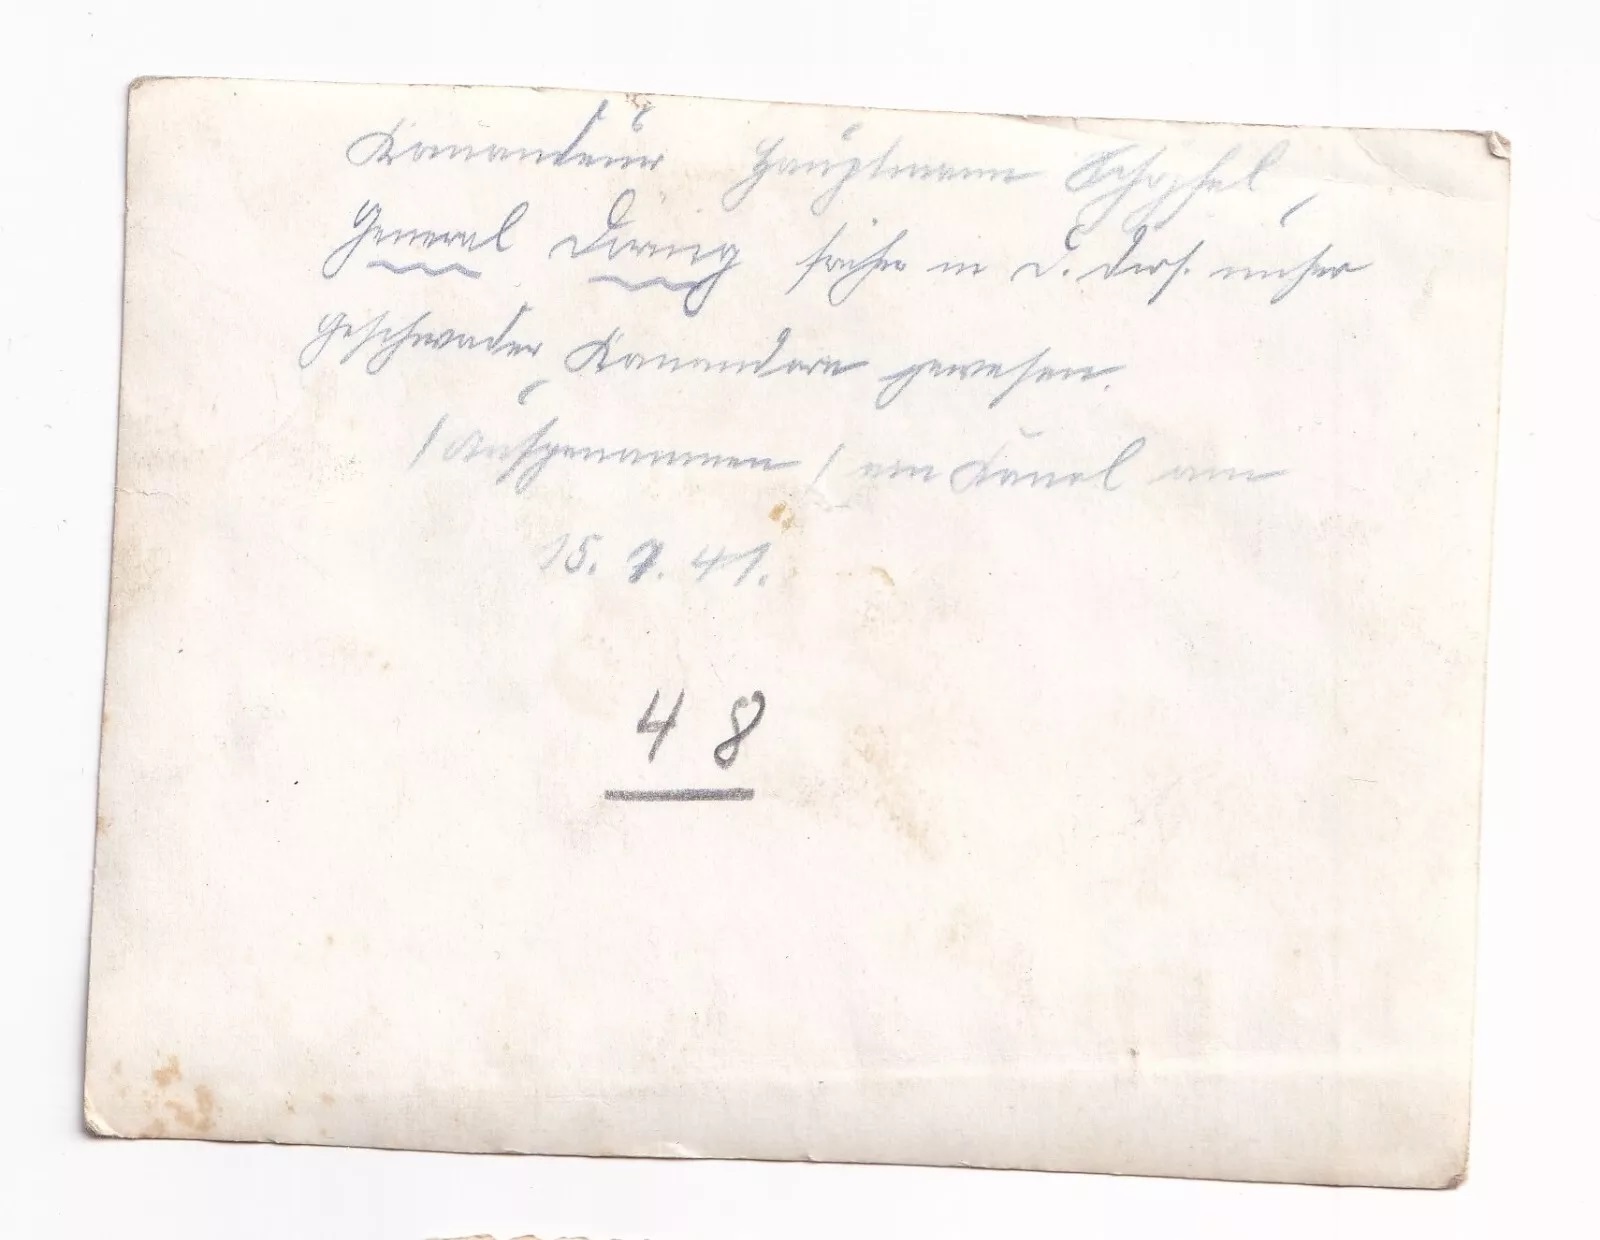 Komandeur Hauptmann Schöpfel,
General Döring früher in d. Ders. unser
Geschwader Komandore gewesen.
/ Aufgenommen / am Kanal am
15. 7. 41.
48